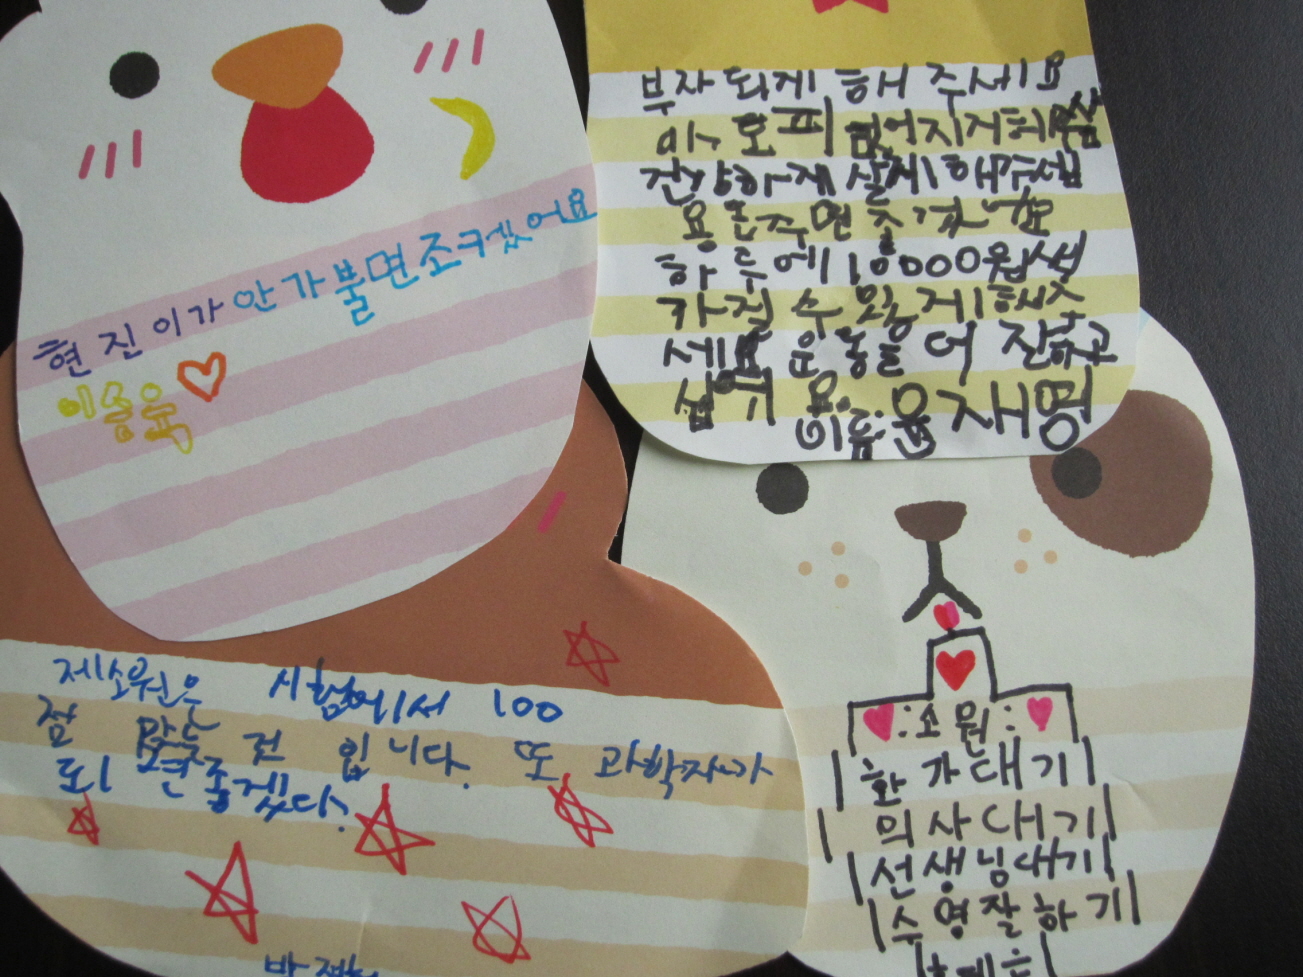 현진이가 안가불면조켔어요
이승육
부자 되게 해 주세요
아토피 없어지게해주삼
건강하게 살게해주세요
용돈주면좋겠네요
하루에 10000원쌕
가질 수 있게해주
세요 운동을 더 잘하고
싶고 요.
이름:윤재영
제소원은 시험에서 100
점 맞는 건 입니다. 또 과학자가
되 면좋겠다.
:소원:
화가대기
의사대기
선생님대기
수영잘하기